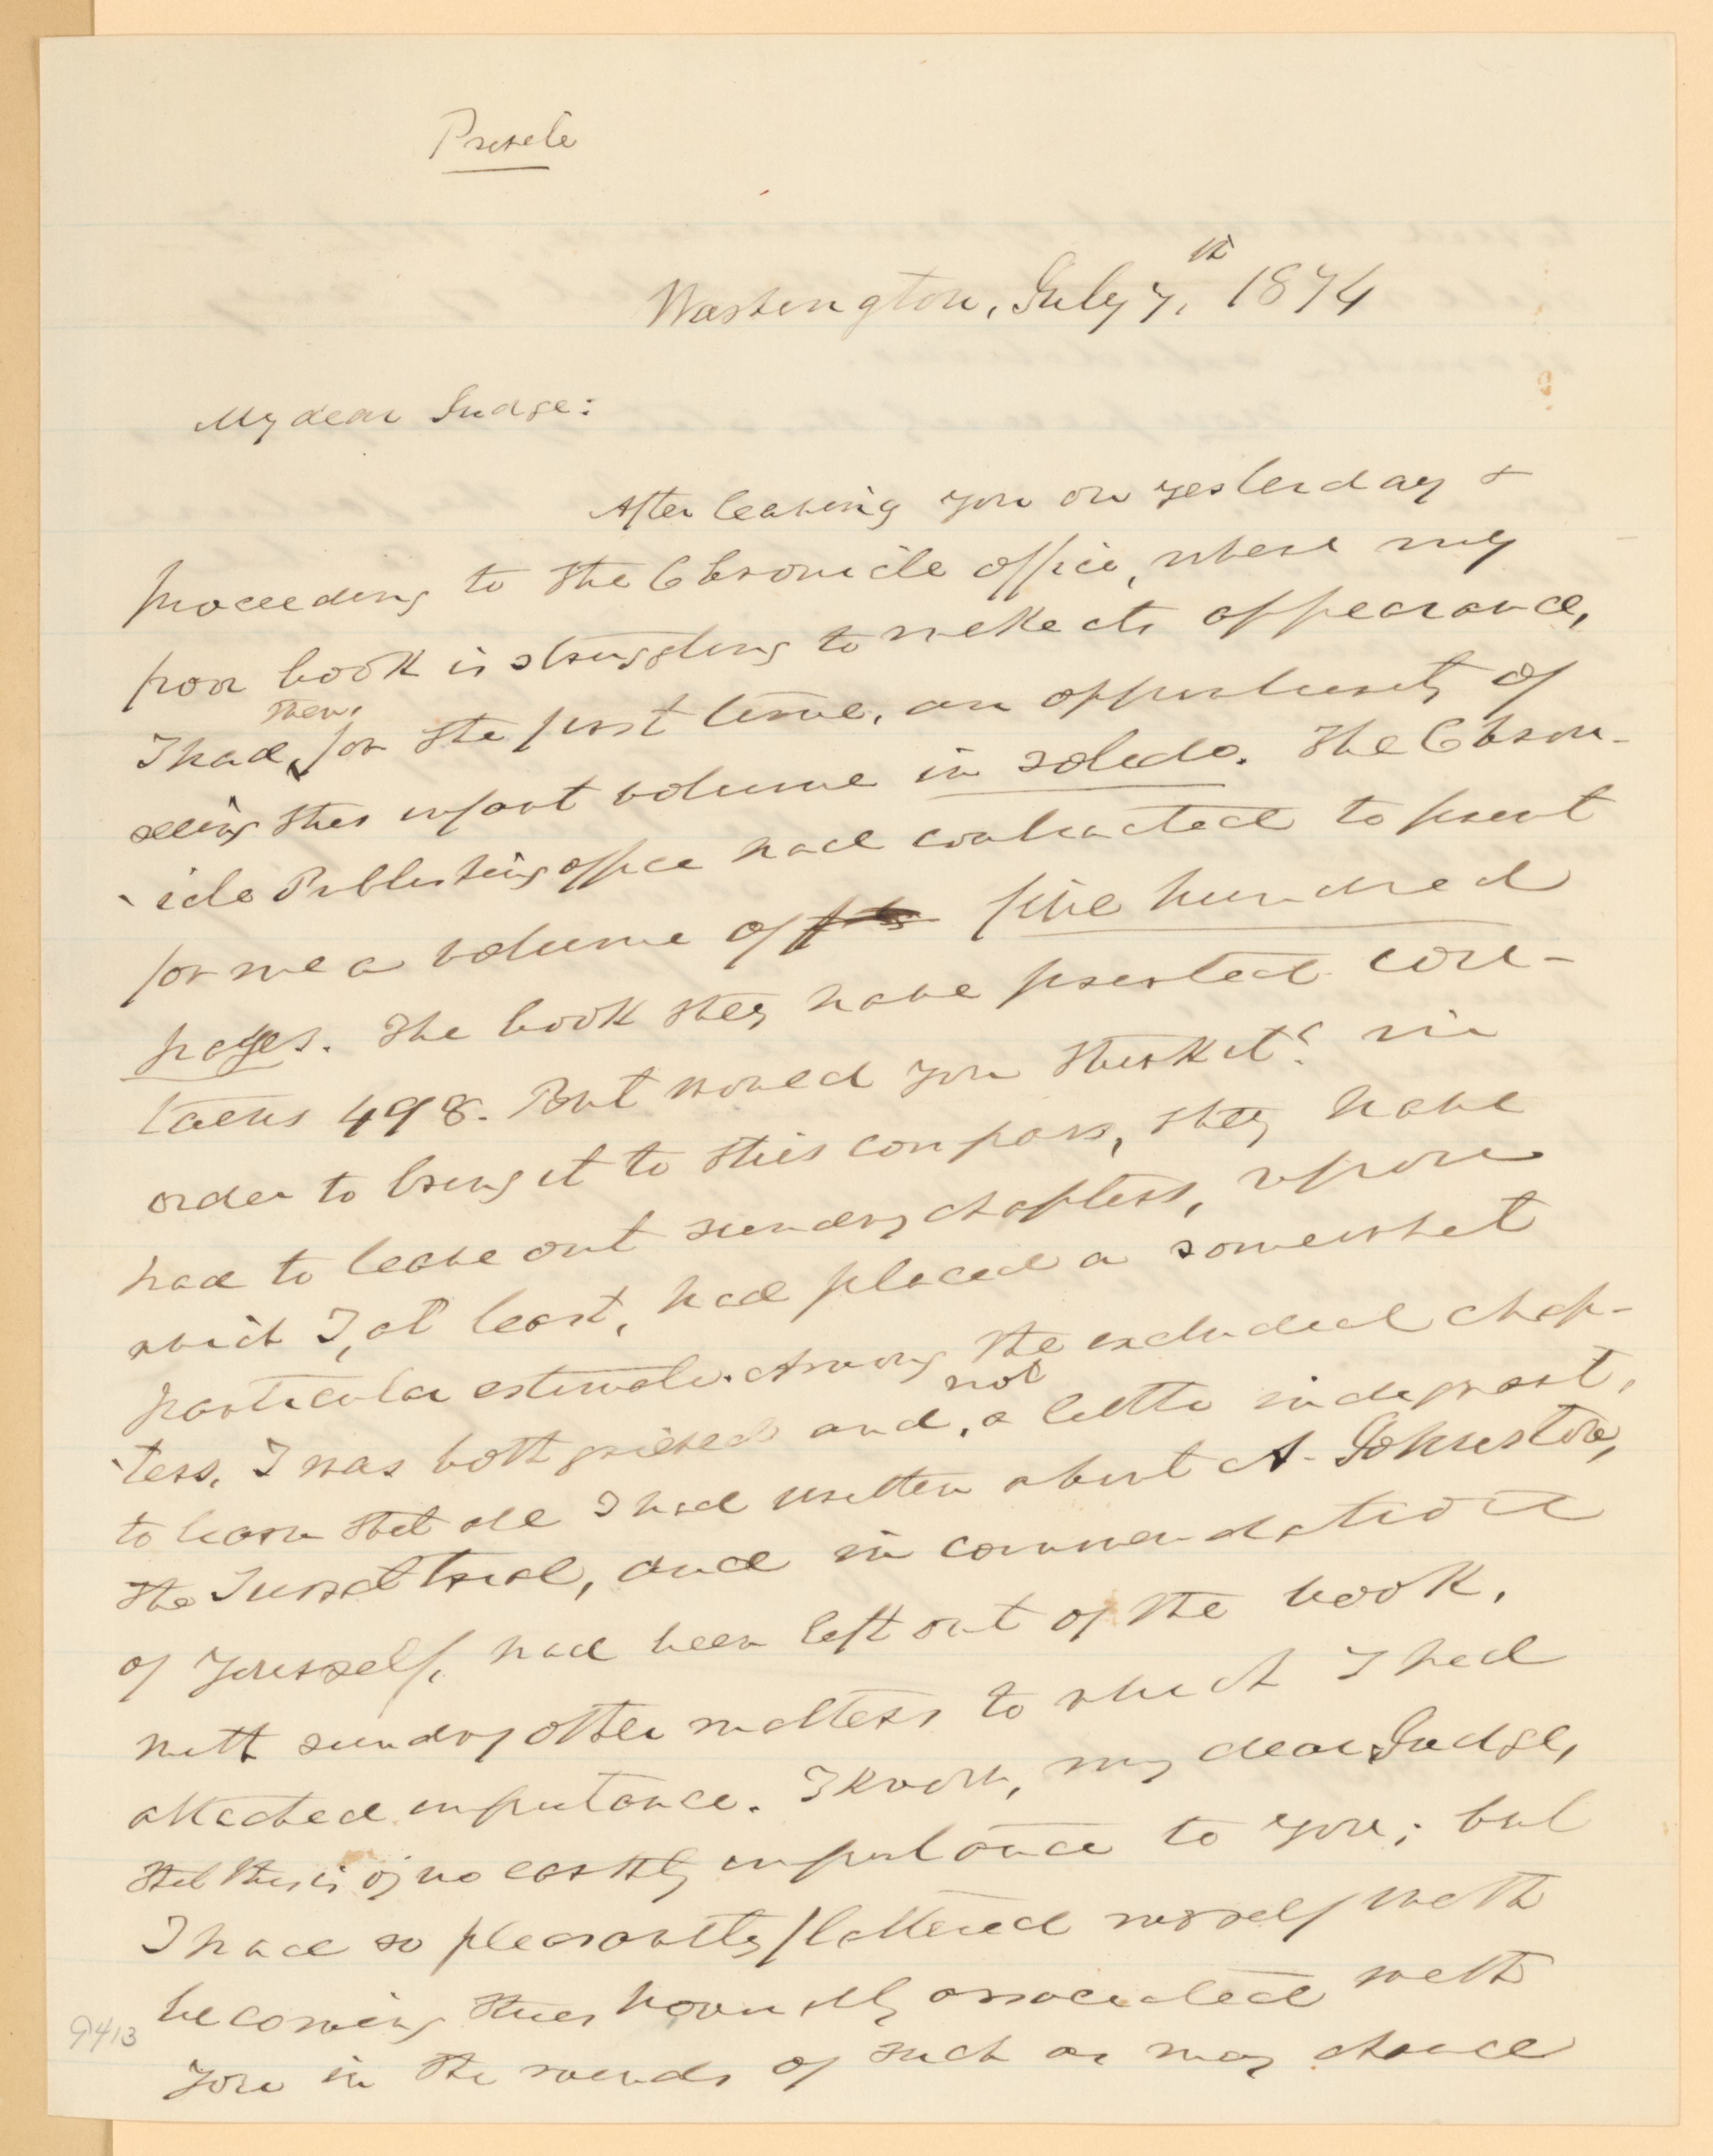 Private
Washington, July 7th, 1874
My dear Judge:
After leaving you on yesterday &
proceeding to the Chronicle office, where my
poor book is struggling to make its appearance,
I had, then, for the first time, an opportunity of
seeing this infant volume in solido. The Chron-
icle Publishing office had contracted to print
for me a volume of five hundred
pages. The book they have printed con-
tains 498. But would you think it? in
order to bring it to this compass, they have
had to leave out sundry chapters, upon
which I, at least, had placed a somewhat
particular estimate. Among the excluded chap-
ters, I was both grieved and, not a little indignant,
to learn that all I had written about A. Johnston,
the Surratt trial, and in commendation
of yourself, had been left out of the book,
with sundry other matters to which I had
attached importance. I know, my dear Judge,
that this is of no earthly importance to you; but
I had so pleasantly flattered myself with
becoming thus honorably associated with
you in the minds of such as may chance
9413